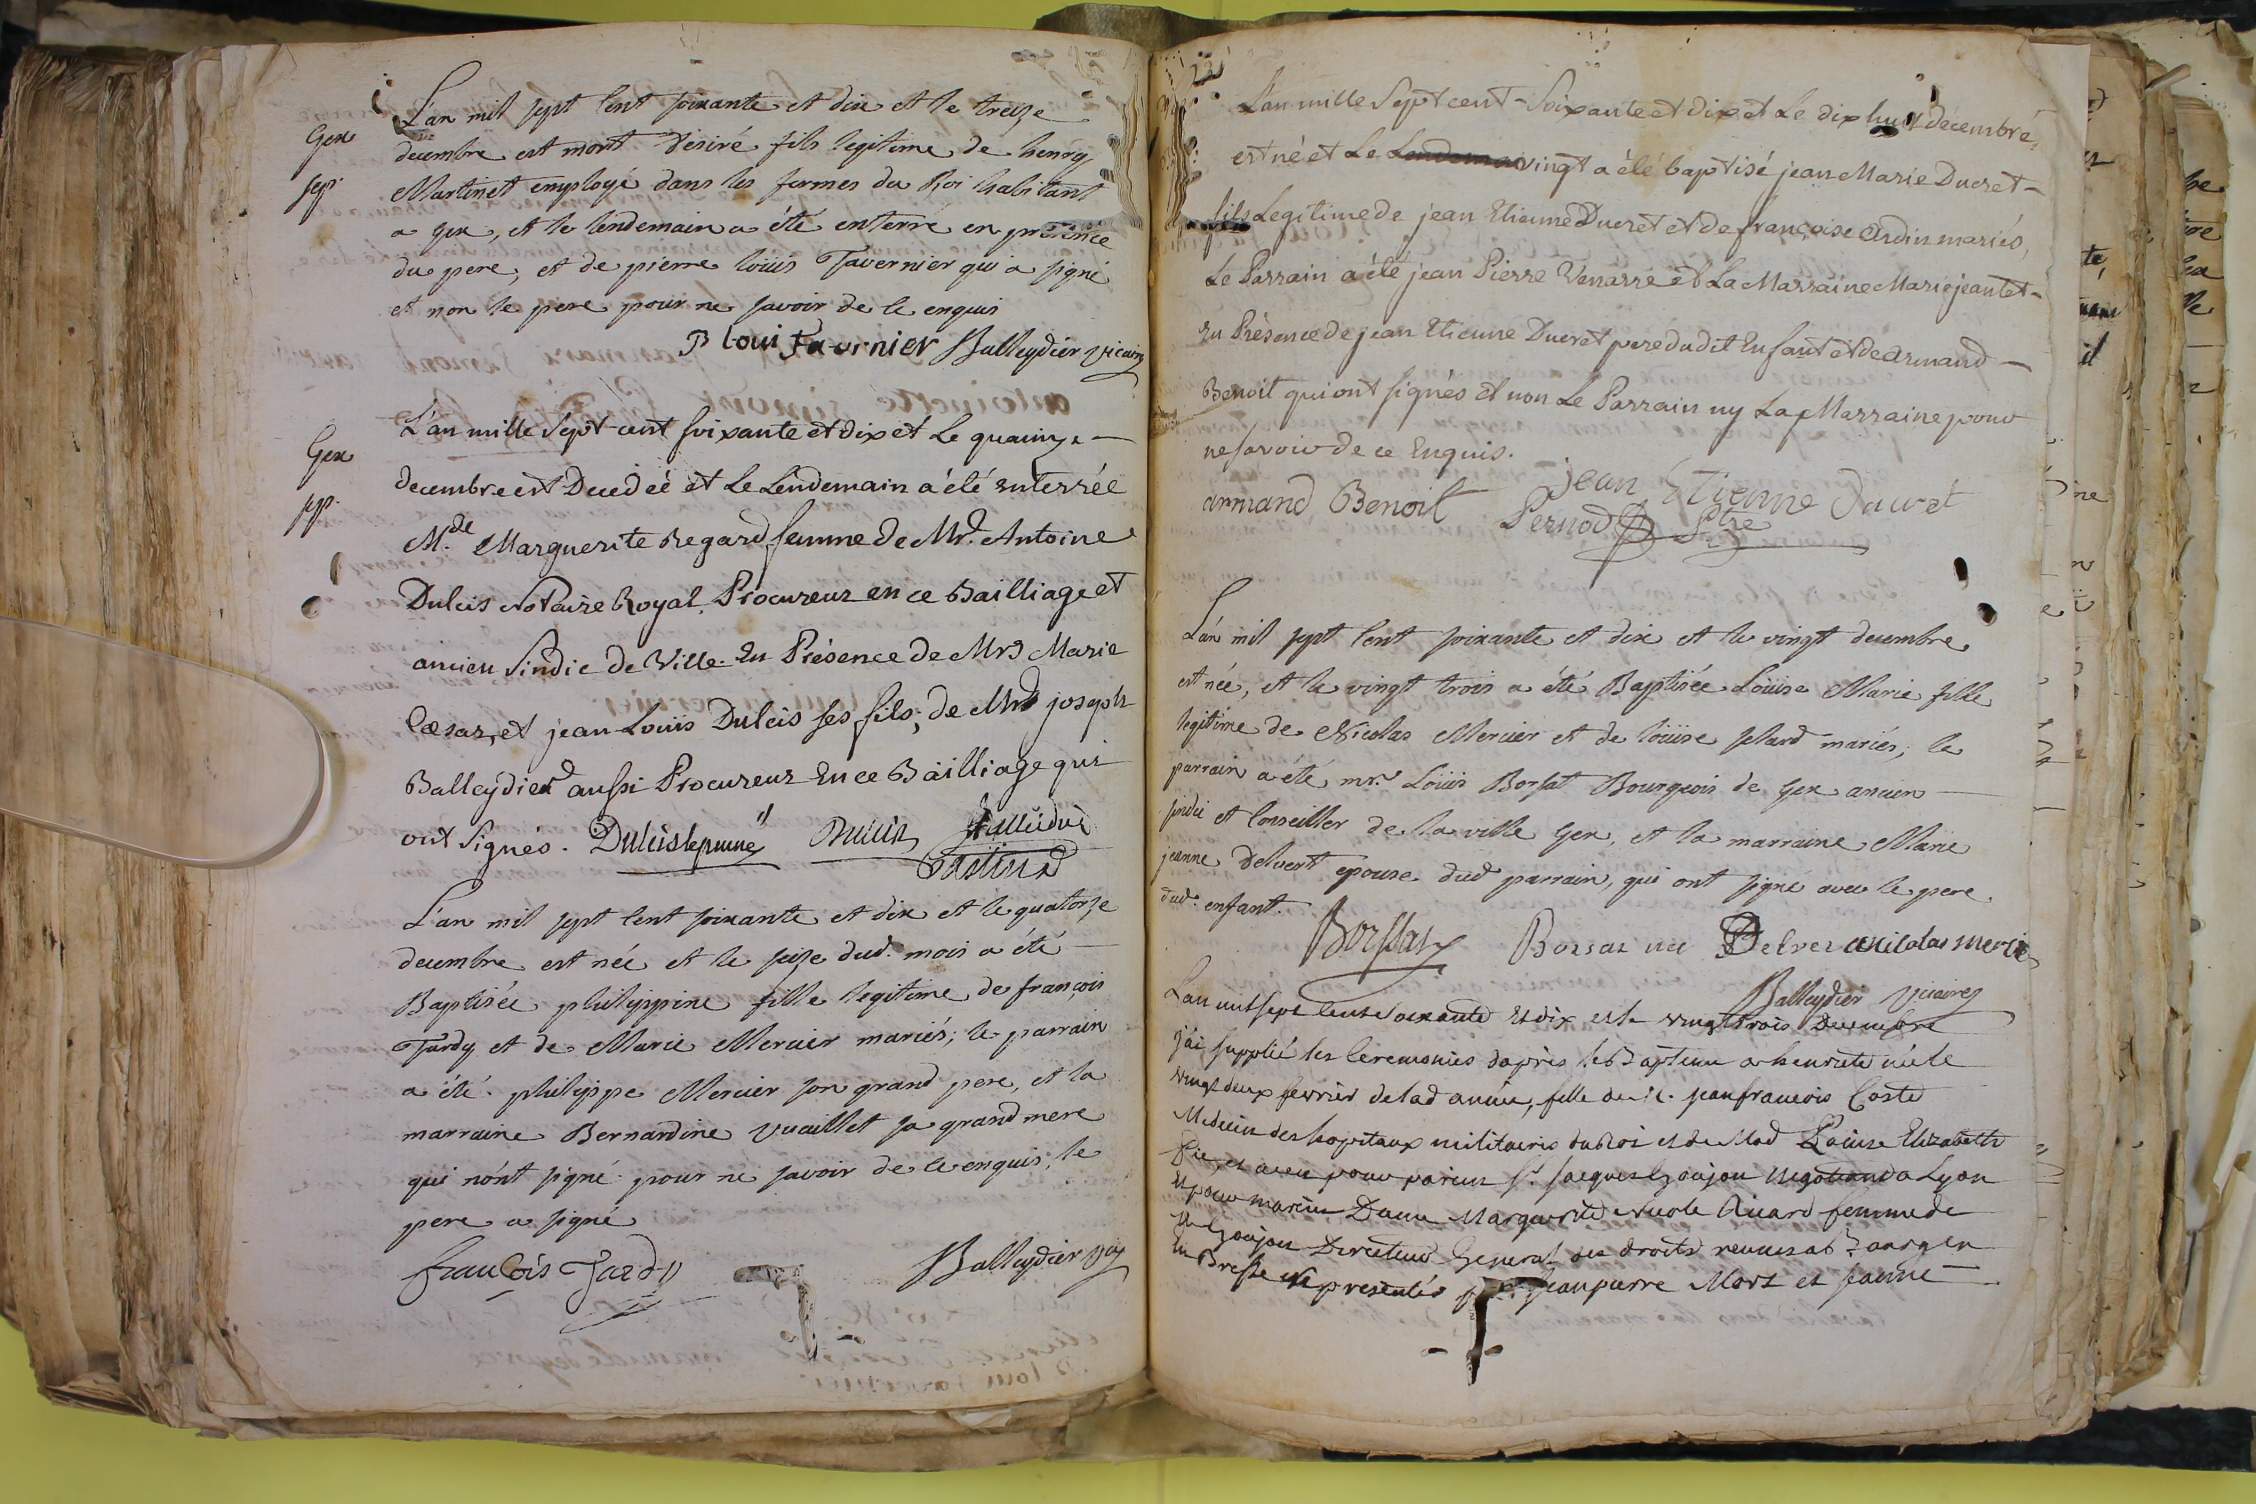 Gex
sep.
L'an mil sept cent soixante et dix et le treize
decembre est mort Desiré fils legitime de henry
Martinet employé dans les fermes du Roi habitant
a gex, et le lendemain a été enterré en présence
du pere, et de pierre loüis Tavernier qui a signé
et non le pere pour ne savoir de ce enquis
P Loui Tavernier Balleydier vicaire
Gex
sep.
L'an mille Sept cent soixante et dix et Le quainze
decembre est Decedeé et Le Lendemain a été enterrée
M.de Marguerite Regard femme de Mr. Antoine
Dulcis Notaire Royal, Procureur en ce Bailliage et
ancien Sindic de Ville. En Présence de Mrs Marie
Cæsar, et jean Louis Dulcis ses fils, de Mrs joseph
Balleÿdier aussi Procureur En ce Bailliage qui
ont Signés. Dulcis le jeune Dulcis Balleidier
L'an mil sept cent soixante et dix et le quatorze
decembre est née et le seize dud. mois a été
Baptisée philippine fille legitime de françois
Tardy et de Marie Mercier mariés; le parrain
a été philippe Mercier son grand pere, et la
marraine Bernardine vuaillet sa grand mere
qui n'ont signé pour ne savoir de ce enquis, le
pere a signé
francois Tardy Balleydier vic
L'an mille Sept cent Soixante et dix et Le dix huit decembre,
est né et Le Lendemain vingt a été baptisé jean Marie Ducret
fils Legitime de jean Etienne Ducret et de françoise Ardin mariés,
Le Parrain a été jean Pierre Venarre et La Marraine Marie jeantet
En Présence de jean Etienne Ducret pere dudit Enfant et de Armand
Benoit qui ont signés et non Le Parrain ny La Marraine pour
ne savoir de ce Enquis.
armand Benoit jean Etienne Ducret
Pernod Ptre
L'an mil sept cent soixante et dix et le vingt decembre
est née, et le vingt trois a été Baptisée Loüise Marie fille
legitime de Nicolas Mercier et de loüise plard mariés; le
parrain a été mr. Loüis Borsat Bourgeois de Gex ancien
sindic et Conseiller de la ville Gex, et la marraine Marie
jeanne Delvert epouse dud parrain, qui ont signé avec le pere
dud. enfant.
Borssat Borsat née Delver nicolas mercie
Balleydier vicaire
L'an mil sept cent soixante et dix et le vingt trois Decembre
j'ai supplié les ceremonies d'après le Baptem a henriete née le
vingt deux fevrier de lad année, fille de Sr. jean francois Coste
Medecin des hopitaux militaires du Roi et de Mad Louise Elizabeth
et a eu pour parein Sr. jacques Goujon negotiand a Lyon
et pour marine Dame Marguerite nicole Aicard femme de
Mr Goujon Directeur General des droits reunis a Bourg en
En Bresse representés par jean pierre Mort et jeanne